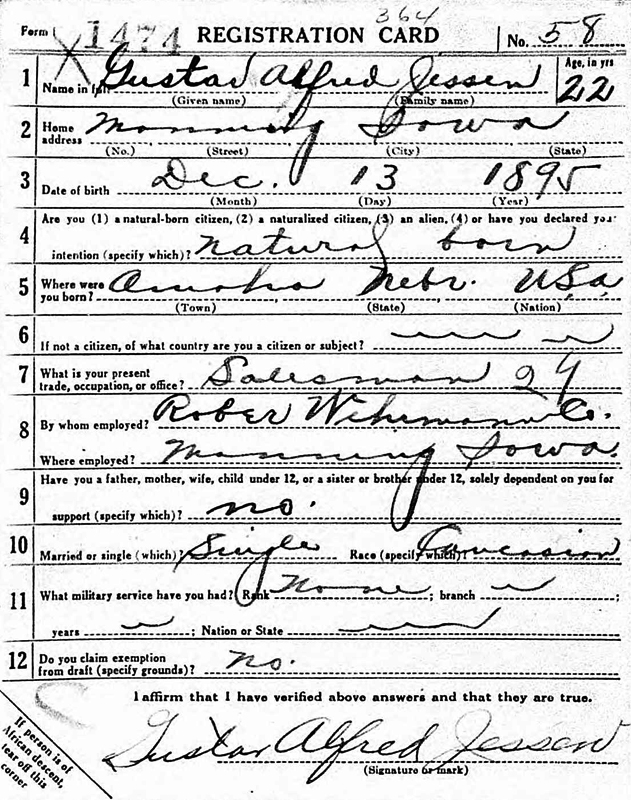 364
Form 1 1474 REGISTRATION CARD No. 58
1 Name in full Gustav Alfred Jessen Age, in yrs 22
(Given name) (Family name)
2 Home address Manning Iowa
(No.) (Street) (City) (State)
3 Date of birth Dec. 13 1895
(Month) (Day) (Year)
Are you (1) a natural-born citizen, (2) a naturalized citizen, (3) an alien, (4) or have you declared your
4 intention (specify which)? natural born
5 Where were you born? Omaha Nebr. U.S.a.
(Town) (State) (Nation)
6 If not a citizen, of what country are you a citizen or subject?
7 What is your present trade, occupation, or office? Salesman 24
8 By whom employed? Rober Wehrmann Co.
Where employed? Manning Iowa.
9 Have you a father, mother, wife, child under 12, or a sister or brother under 12, solely dependent on you for
support (specify which)? no.
10 Married or single (which)? Single Race (specify which)? Caucasian
11 What military service have you had? Rank None ; branch ;
years ; Nation or State
12 Do you claim exemption from draft (specify grounds)? No.
I affirm that I have verified above answers and that they are true.
Gustav Alfred Jessen
(Signature or mark)
If person is of
African descent,
tear off this
corner